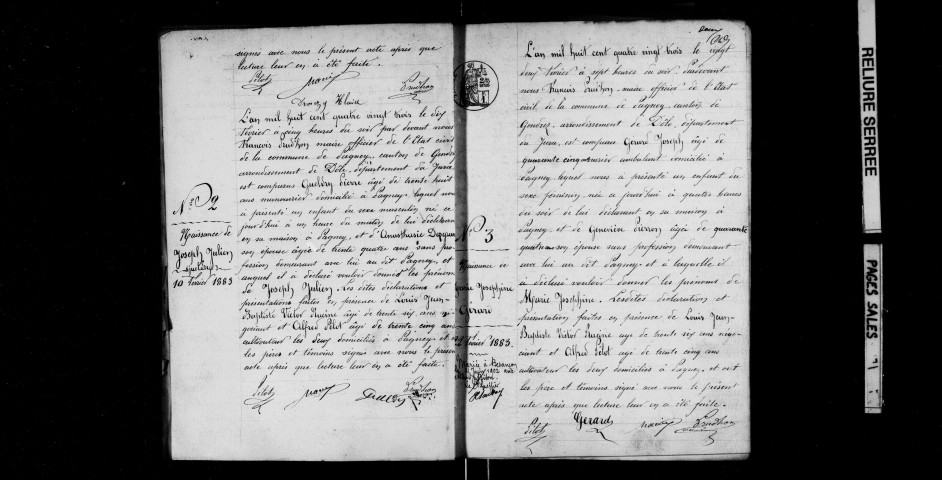 signés avec nous le présent acte après que
lecture leur en a été faite.
Pilot Prudhon
L'an mil huit cent quatre vingt trois le dix
février à cinq heures du soir par devant nous
François Prudhon maire officier de l'Etat civil
de la commune de Pagney, canton de Gendrey
arrondissement de Dôle, département du Jura,
est comparu Pierre âgé de trente huit
ans domicilié à Pagney, lequel nous
a présenté un enfant du sexe masculin né ce
jourd'hui à un heure du matin de lui déclarant
en sa maison à Pagney, et d'Anasthasie
son épouse âgée de trente quatre ans sans pro
fession demeurant avec lui au dit Pagney, et
auquel il a déclaré vouloir donner les prénoms
de Joseph Julien. Les dites déclarations et
présentations faites en présence de Louis Jean-
Baptiste Victor Racine âgé de trente six ans né
gociant et Alfred Pilot âgé de trente cinq ans
cultivateur les deux domiciliés à Pagney et ont
les pères et témoins signés avec nous le présent
acte après que lecture leur en a été faite.
Pilot Prudhon
No 2
Naissance de
Joseph Julien
10 Février 1883
No 3
Naissance de
Marie Joséphine
Gérard
Février 1883.
Mariée à Besançon
L'an mil huit cent quatre vingt trois le vingt
deux février à sept heures du soir, Pardevant
nous François Prudhon, maire officier de l'Etat
civil de la commune de Pagney, canton de
Gendrey, arrondissement de Dôle, département
du Jura, est comparu Gerard Joseph âgé de
quarante cinq ans domicilié à
Pagney, lequel nous a présenté un enfant du
sexe féminin, née aujourd'hui à quatre heures
du soir de lui déclarant en sa maison à
Pagney, et de Geneviève Pierron âgée de quarante
quatre ans son épouse sans profession demeurant
avec lui au dit Pagney, et à laquelle il
a déclaré vouloir donner les prénoms de
Marie Joséphine. Lesdites déclaration et
présentation faites en présence de Louis Jean-
Baptiste Victor Racine âgé de trente six ans négo-
ciant et Alfred Pilot âgé de trente cinq ans
cultivateur les deux domiciliés à Pagney, et ont
les père et témoins signé avec nous le présent
acte après que lecture leur en a été faite.
Pilot Gerard Prudhon
RELIURE SERREE
PAGES SALES